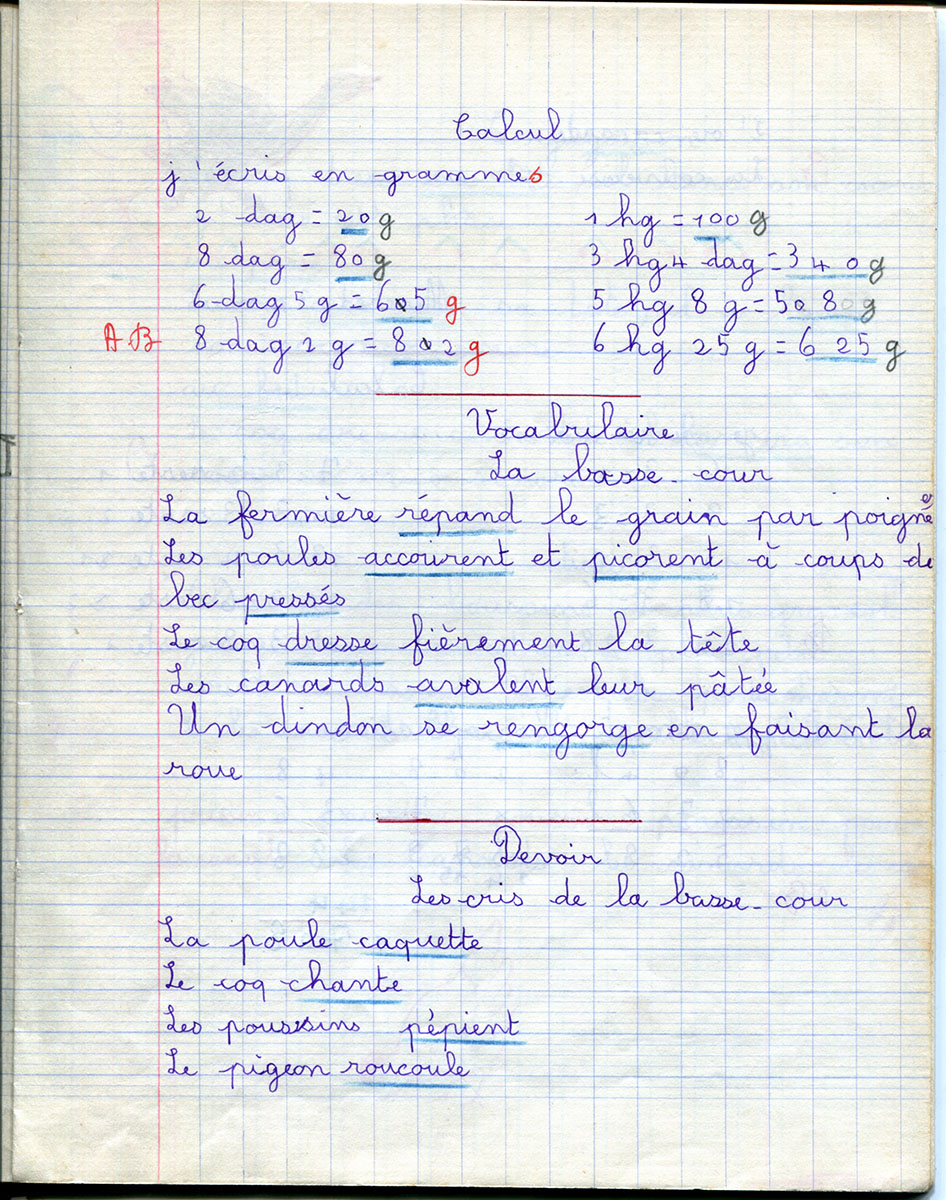 Calcul
j'écris en grammes
2 dag = 20 g 1 hg = 100 g
8 dag = 80 g 3 hg 4 dag = 340 g
6 dag 5 g = 605 g 5 hg 8 g = 508 g
AB 8 dag 2 g = 802 g 6 hg 25 g = 625 g
Vocabulaire
La basse-cour
La fermière répand le grain par poignée
Les poules accourent et picorent à coups de
bec pressés
Le coq dresse fièrement la tête
Les canards avalent leur pâtée
Un dindon se rengorge en faisant la
roue
Devoir
Les cris de la basse-cour
La poule caquette
Le coq chante
Les poussins pépient
Le pigeon roucoule